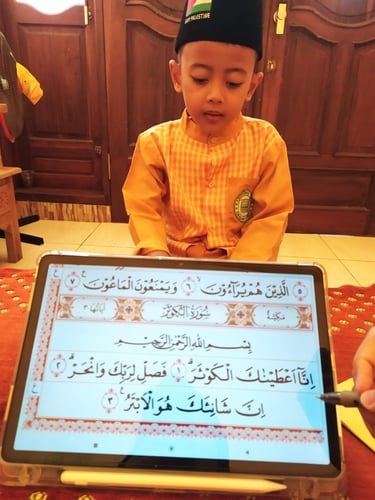 PALESTINE
الَّذِيْنَ هُمْ يُرَآءُوْنَ ۙ ٦ وَيَمْنَعُوْنَ الْمَاعُوْنَ ࣖ ٧
مكيّة سُوْرَةُ الْكَوْثَرِ اٰياتها ٣
بِسْمِ اللّٰهِ الرَّحْمٰنِ الرَّحِيْمِ
اِنَّآ اَعْطَيْنٰكَ الْكَوْثَرَۗ ١ فَصَلِّ لِرَبِّكَ وَانْحَرْۗ ٢
اِنَّ شَانِئَكَ هُوَ الْاَبْتَرُ ࣖ ٣